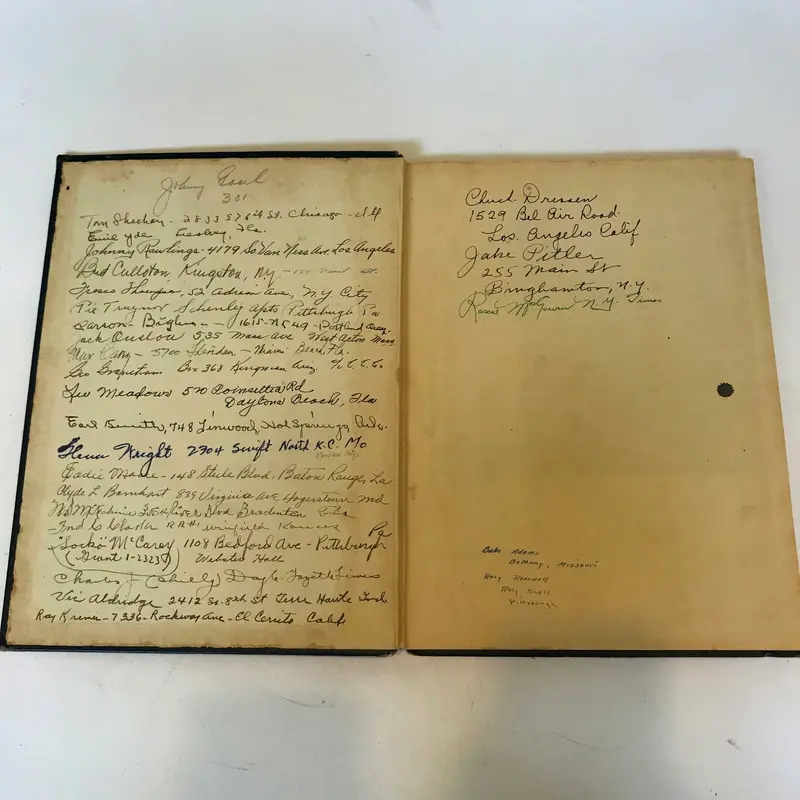 Johnny
301
Tom Sheehan - 2833 S 76th St. Chicago - Ill
Emil Yde Leesburg, Fla.
Johnny Rawlings - 4179 So. Van Ness Ave. Los Angeles
Bud Culloton Kingston, N.Y. - St.
Fresco Thompson, 52 Adrian Ave, N.Y. City
Pie Traynor Schenly Apts Pittsburgh Pa
Carson Bigbee - 1615 - N E 49 - Portland Oreg.
Jack Onslow 535 Mass Ave West Acton Mass
Max Carey - 5700 Sheridan - Miami Beach, Fla.
Geo Grantham Box 368 Kingman Ariz.
Lee Meadows 570 Poinsettia Rd
Daytona Beach, Fla
Earl Smith, 748 Linwood, Hot Springs, Ark.
Glenn Wright 2704 Swift North K.C. Mo
Eddie Moore - 148 Steele Blvd. Baton Rouge, La
Clyde L Barnhart 839 Virginia Ave Hagerstown Md
McKechnie River Blvd Bradenton Fla
Fred C Clarke RR#1 Winfield Kansas
"Socko" McCarey 1108 Bedford Ave - Pittsburgh Pa
(Grant 1-2323) Webster Hall
Charles J (Chilly) Doyle - Gazette Times
Vic Aldridge 2412 So. 8th St Terre Haute Ind.
Ray Kremer - 7336 - Rockway Ave - El Cerrito Calif
Chuck Dressen
1529 Bel Air Road
Los. Angelis Calif
Jake Pitler
255 Main St
Binghamton, N.Y.
Roscoe McGowen N.Y. Times
Babe Adams
Bethany, Missouri
Rosy Rowswell
Rosy
Pittsburgh